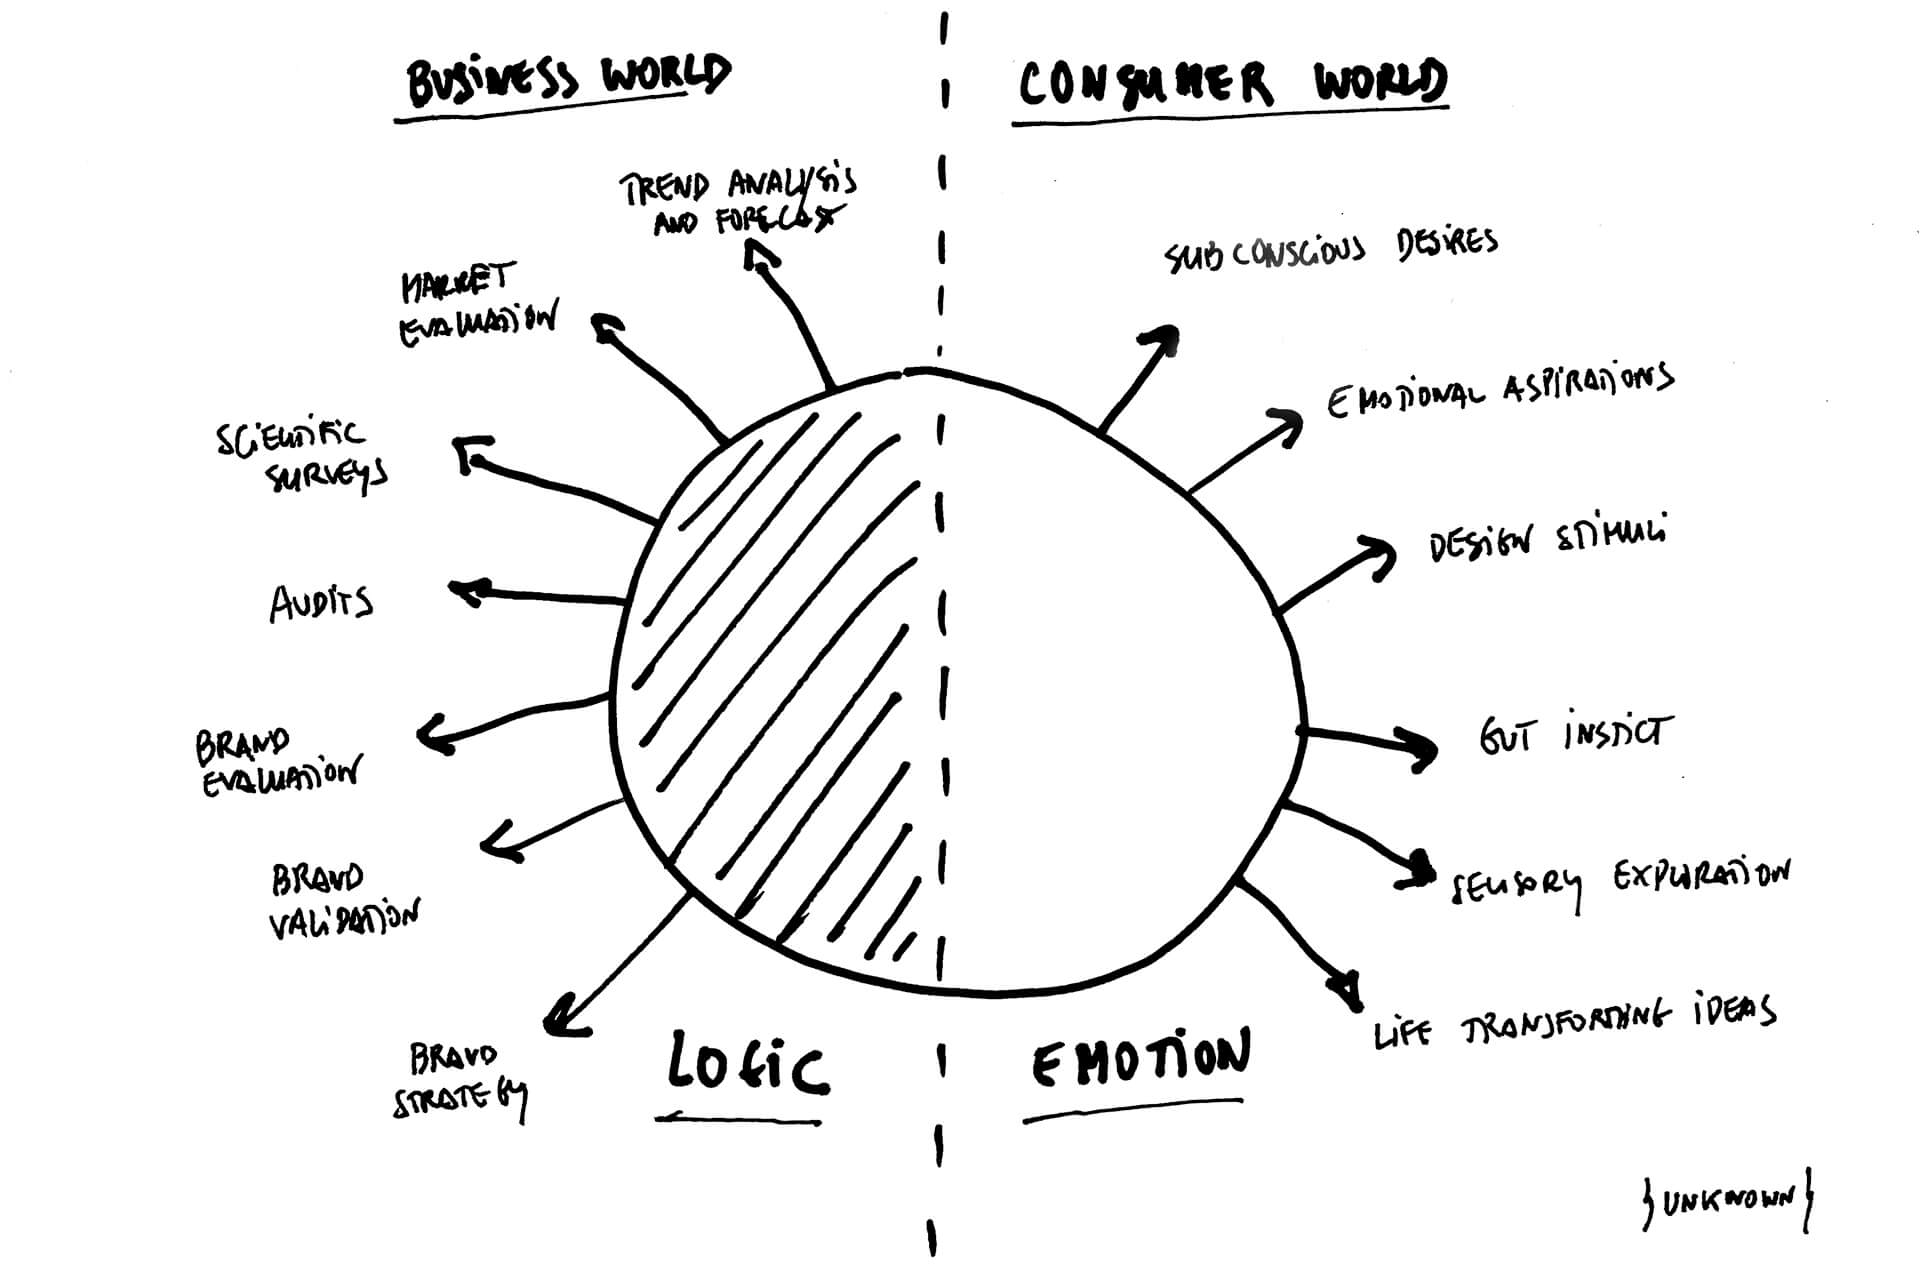 BUSINESS WORLD
CONSUMER WORLD
TREND ANALYSIS
AND FORECAST
MARKET
EVALUATION
SCIENTIFIC
SURVEYS
AUDITS
BRAND
EVALUATION
BRAND
VALIDATION
BRAND
STRATEGY
LOGIC
SUBCONSCIOUS DESIRES
EMOTIONAL ASPIRATIONS
DESIGN STIMULI
GUT INSTICT
SENSORY EXPLORATION
LIFE TRANSFORMING IDEAS
EMOTION
{UNKNOWN}